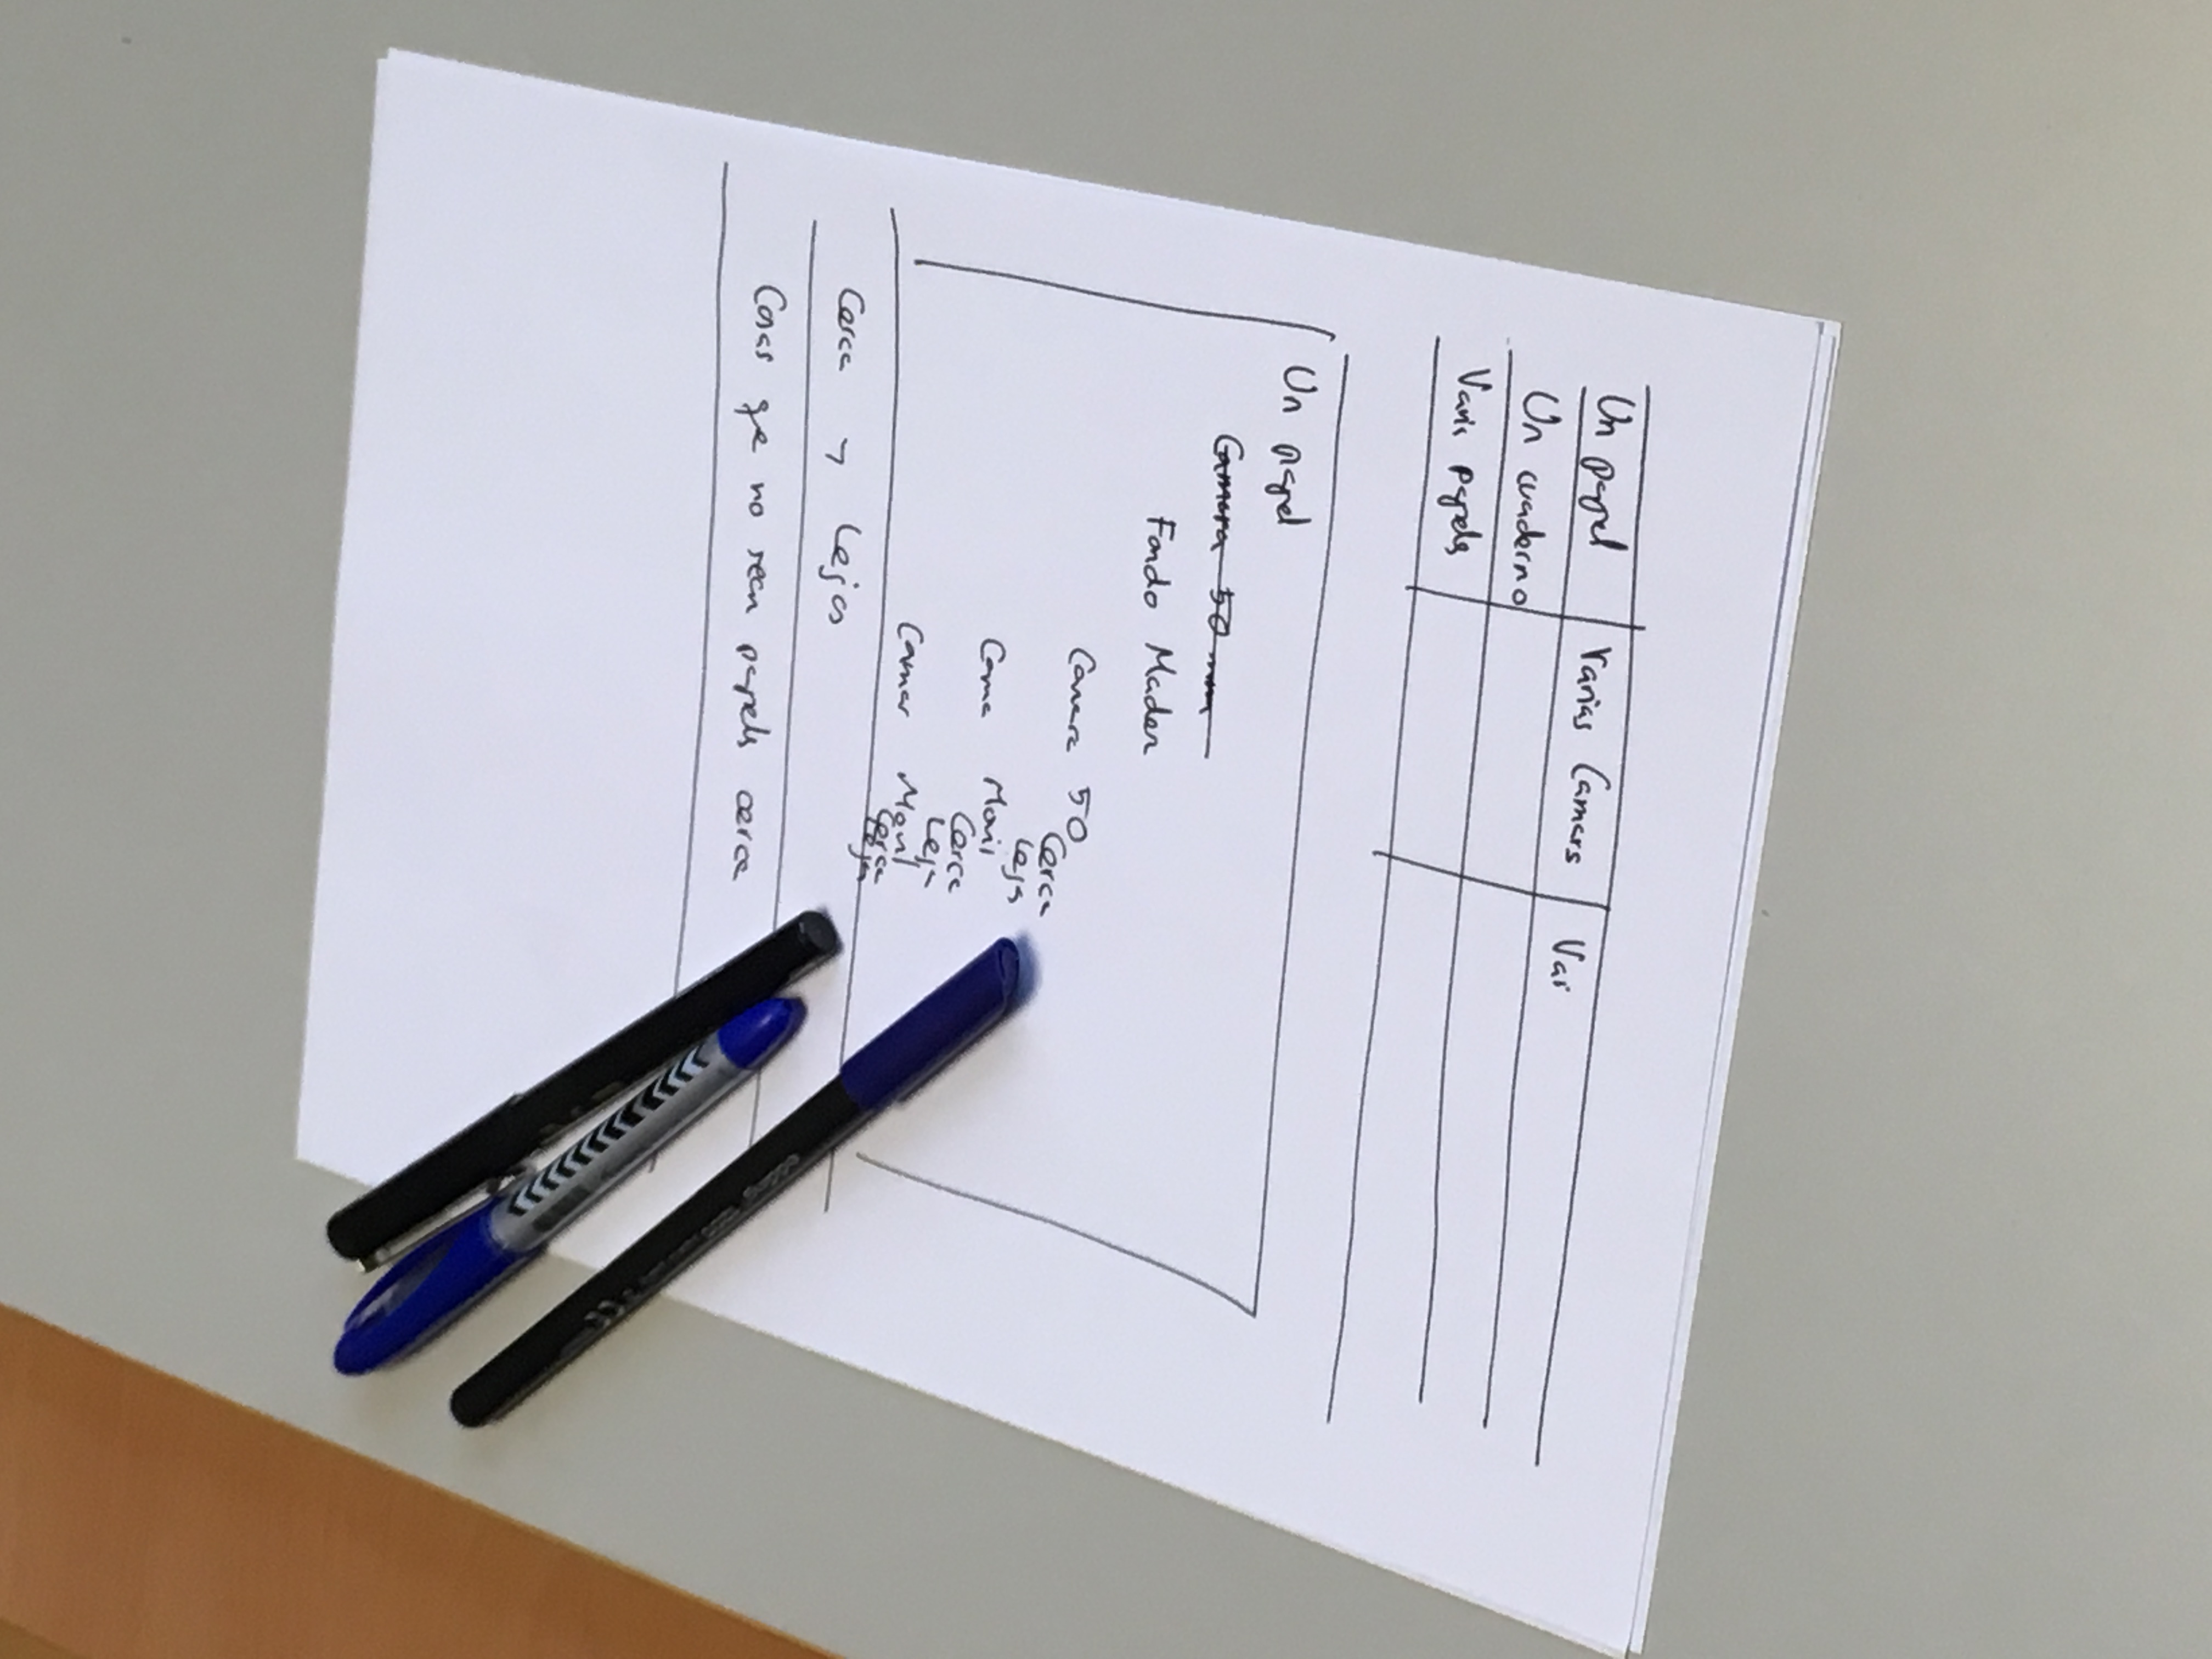 Un papel Varias Camers Vai
Un cuaderno
Varis papels
Un papel
Camara 50 mm
Fondo Mader
Camere 50
Cerce
Lejs
Came Movi
Cerce
Lejs
Camer Movl
Cerce
Lejs
Cerce y Lejos
Cosas qe no sean papels cerce